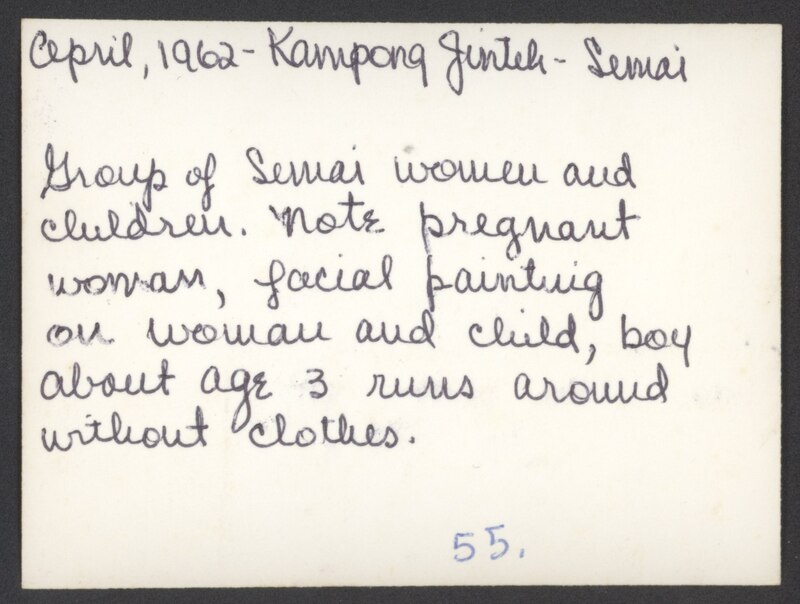 April, 1962 - Kampong Jinteh - Semai
Group of Semai women and
children. Note pregnant
woman, facial painting
on woman and child, boy
about age 3 runs around
without clothes.
55.